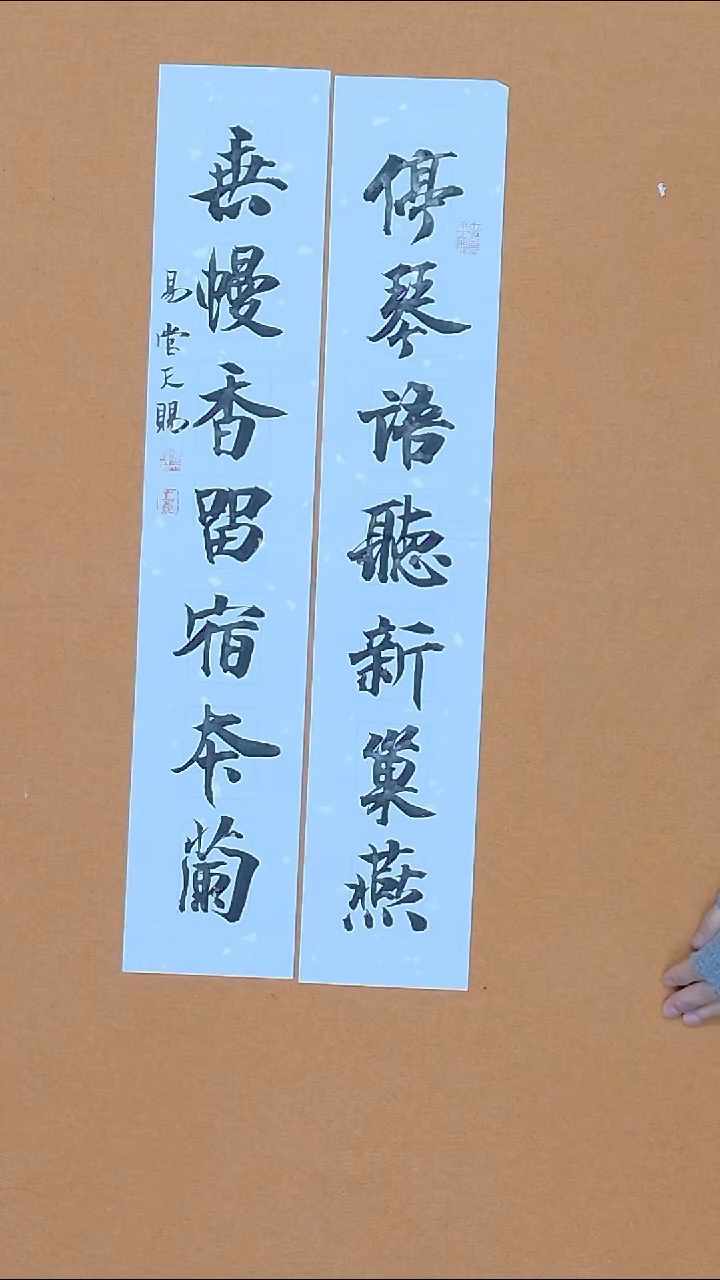 停琴語聽新巢燕
垂幔香留宿本蘭
易堂天賜